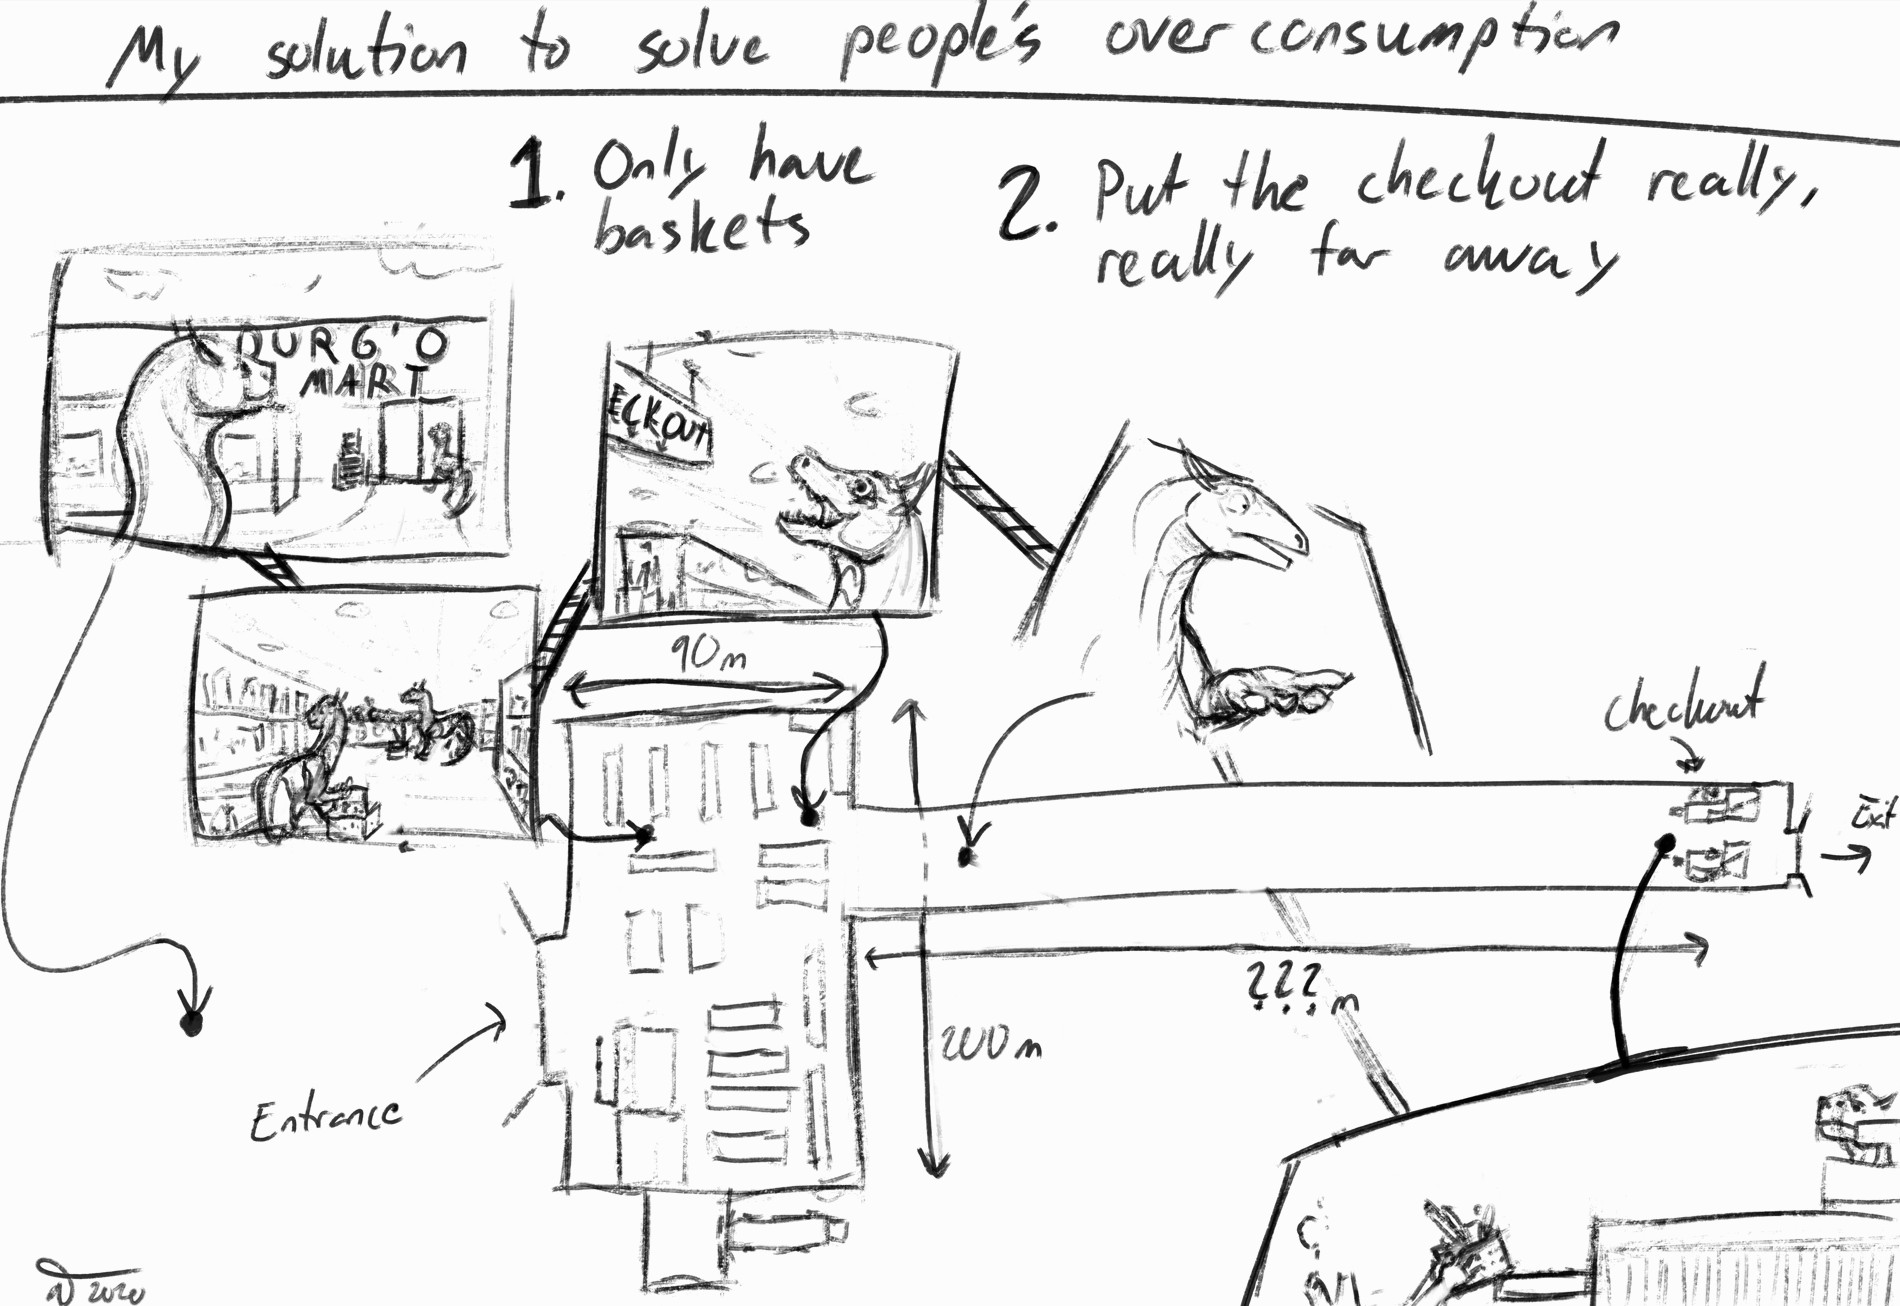 My solution to solve people's overconsumption
1. Only have
baskets
2. Put the checkout really,
really far away
DURG'O
MART
ECKOUT
90m
checkout
Exit
???m
200m
Entrance
2020